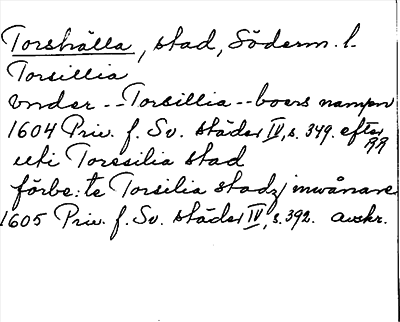 Torshälla, stad, Söderm. l.
Torsillia
vnder -- Torsillia -- boers nampn
1604 Priv. f. Sv. städer IV, s. 349. efter
uti Torssilia stad
förbe:te Torsilia stadz inwånare
1605 Priv. f. Sv. städer IV, s. 392. avskr.